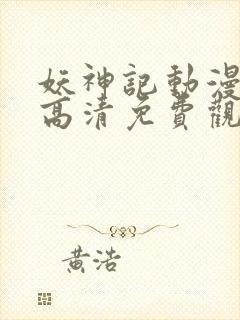 妖神記動漫
高清免費觀
黃浩